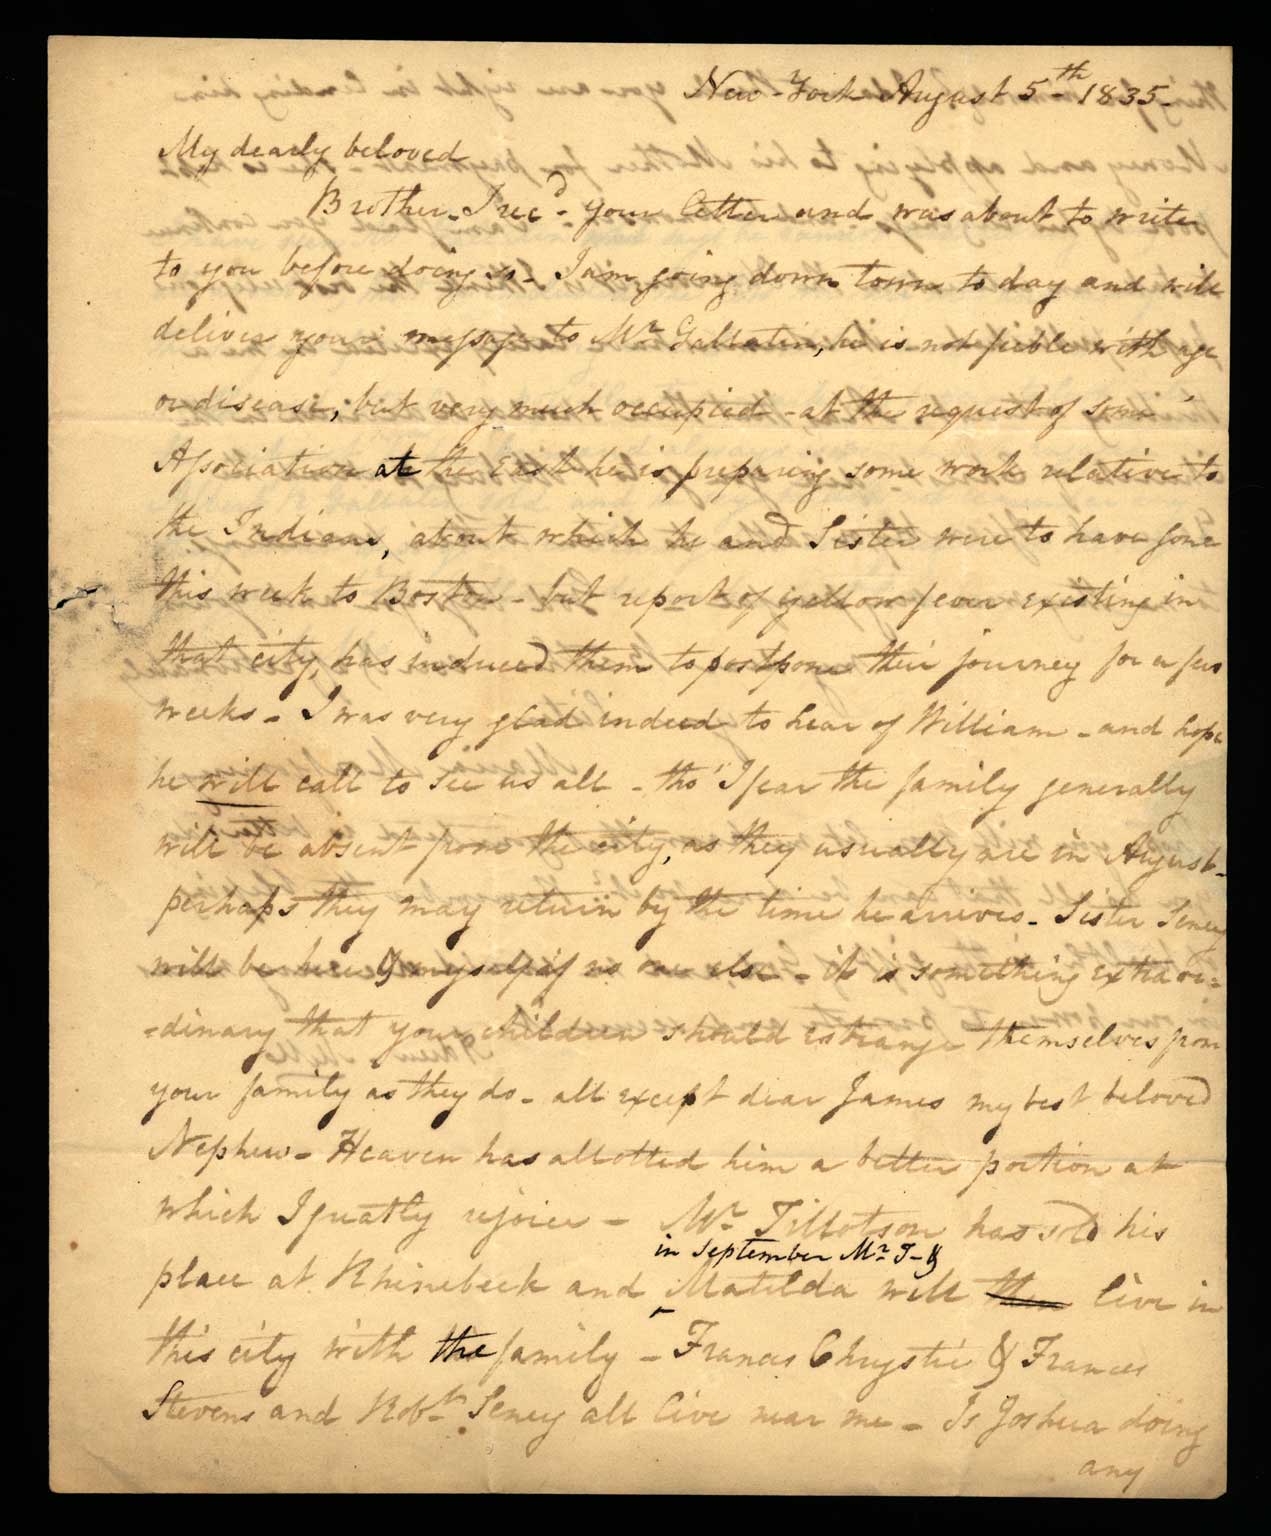 New-York August 5th 1835-
My dearly beloved
Brother- I recd- your letter and was about to write
to you before doing so- I am going down town to day and will
deliver your message to Mr Gallatin, he is not feeble with age
or disease, but very much occupied - at the request of some
Association at the East he is preparing some work relative to
the Indians, about which he and Sister were to have gone
this week to Boston - but report of yellow fever existing in
that city, has induced them to postpone their journey for a few
weeks - I was very glad indeed to hear of William - and hope
he will call to see us all - tho' I fear the family generally
will be absent from the city, as they usually are in August-
perhaps they may return by the time he arrives - Sister Seney
will be here & myself if no one else - it is something extraor=
=dinary that your children should estrange themselves from
your family as they do - all except dear James my best beloved
Nephew - Heaven has allotted him a better portion at
which I greatly rejoice - Mr Tillotson has sold his
in September Mr T- &
place at Rhinebeck and Matilda will then live in
this city with the family - Frances Chrystie & Frances
Stevens and Robt Seney all live near me - Is Joshua doing
any